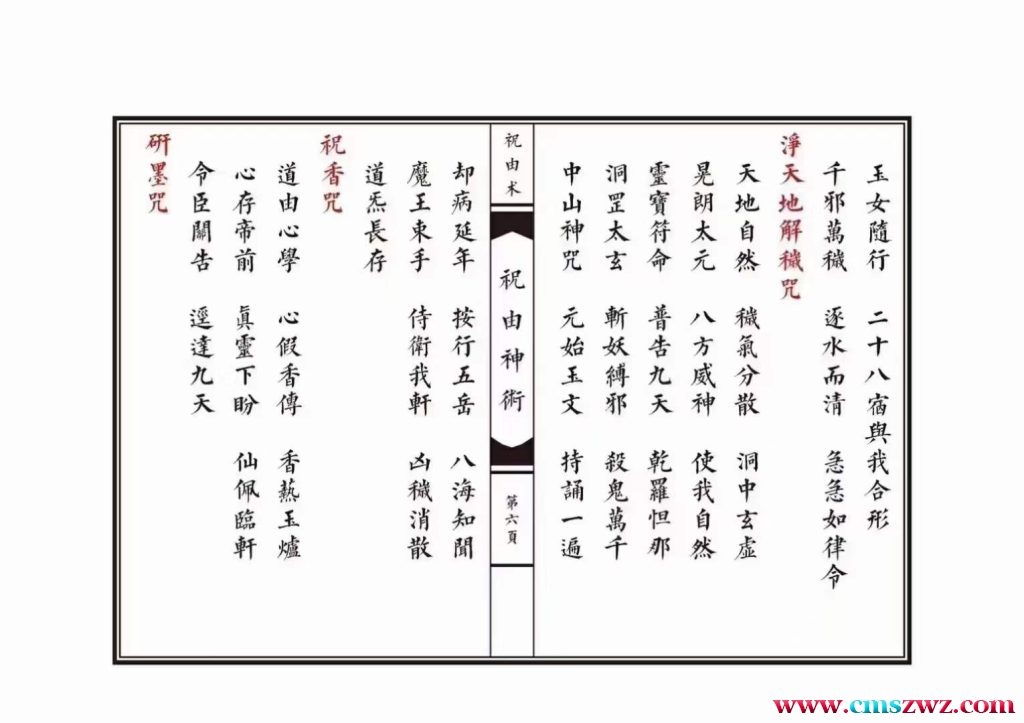 玉女隨行 二十八宿與我合形
千邪萬穢 逐水而清 急急如律令
淨天地解穢咒
天地自然 穢氣分散 洞中玄虛
晃朗太元 八方威神 使我自然
靈寶符命 普告九天 乾羅怛那
洞罡太玄 斬妖縛邪 殺鬼萬千
中山神咒 元始玉文 持誦一遍
祝由术
祝由神術
第六頁
却病延年 按行五岳 八海知聞
魔王束手 侍衛我軒 凶穢消散
道炁長存
祝香咒
道由心學 心假香傳 香爇玉爐
心存帝前 真靈下盼 仙佩臨軒
令臣關告 逕達九天
研墨咒
www.cmszwz.com